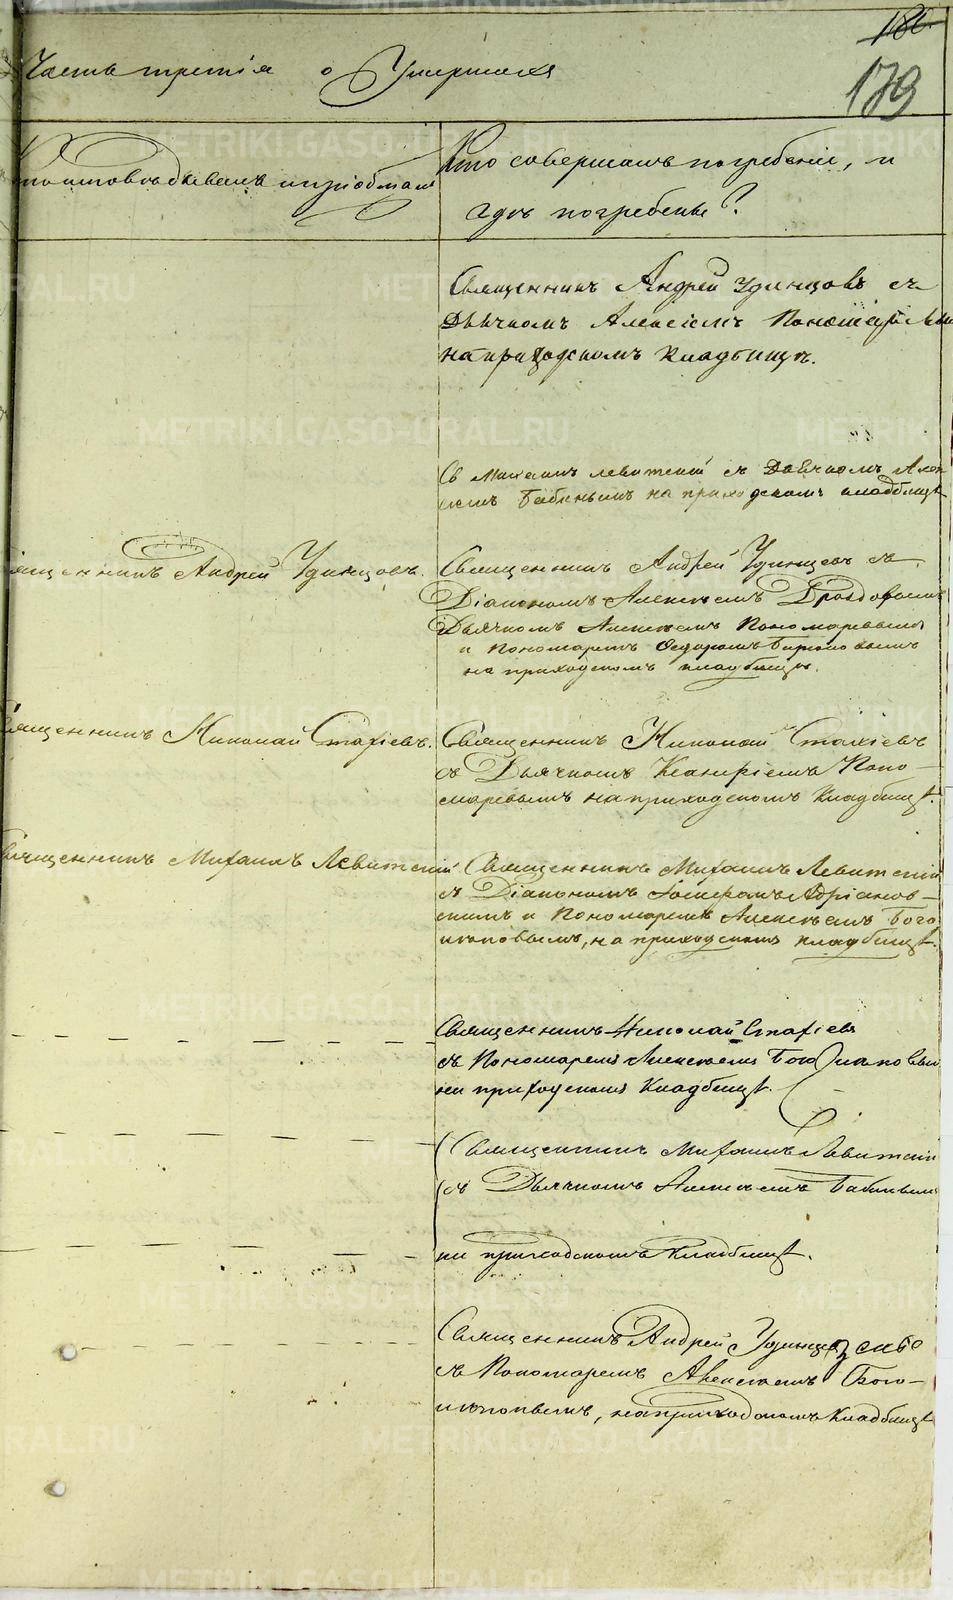 186
179
Часть третія о Умершихъ
Кто исповѣдывалъ и пріобщалъ
Кто совершалъ погребеніе, и
гдѣ погребены?
Священникъ Андрей Удинцовъ съ
Дьячкомъ Алексіемъ
на приходскомъ Кладбищѣ.
Св Михаилъ Левитскій съ Дьячкомъ Алек
Бабинымъ на приходскомъ кладбищѣ
священникъ Андрей Удинцовъ.
Священникъ Андрей Удинцовъ съ
Діакономъ Алексѣемъ Дроздовымъ
Дьячкомъ Алексѣемъ Пономаревымъ
и Пономаремъ Федоромъ
на приходскомъ кладбищѣ.
Священникъ Николай Стахіевъ.
Священникъ Николай Стахіевъ
съ Дьячкомъ Поно-
маревымъ на приходскомъ Кладбищѣ.
Священникъ Михаилъ Левитскій
Священникъ Михаилъ Левитскій
съ Діакономъ Адріанов-
скимъ и Пономаремъ Алексѣемъ Бого
на приходскомъ кладбищѣ.
Священникъ Николай Стахіевъ
съ Пономаремъ Алексѣемъ
на приходскомъ Кладбищѣ.
Священникъ Михаилъ Левитскій
съ Дьячкомъ Алексѣемъ Бабинымъ
на приходскомъ Кладбищѣ.
Священникъ Андрей
съ Пономаремъ Алексѣемъ Бого-
на приходскомъ Кладбищѣ
METRIKI.GASO-URAL.RU